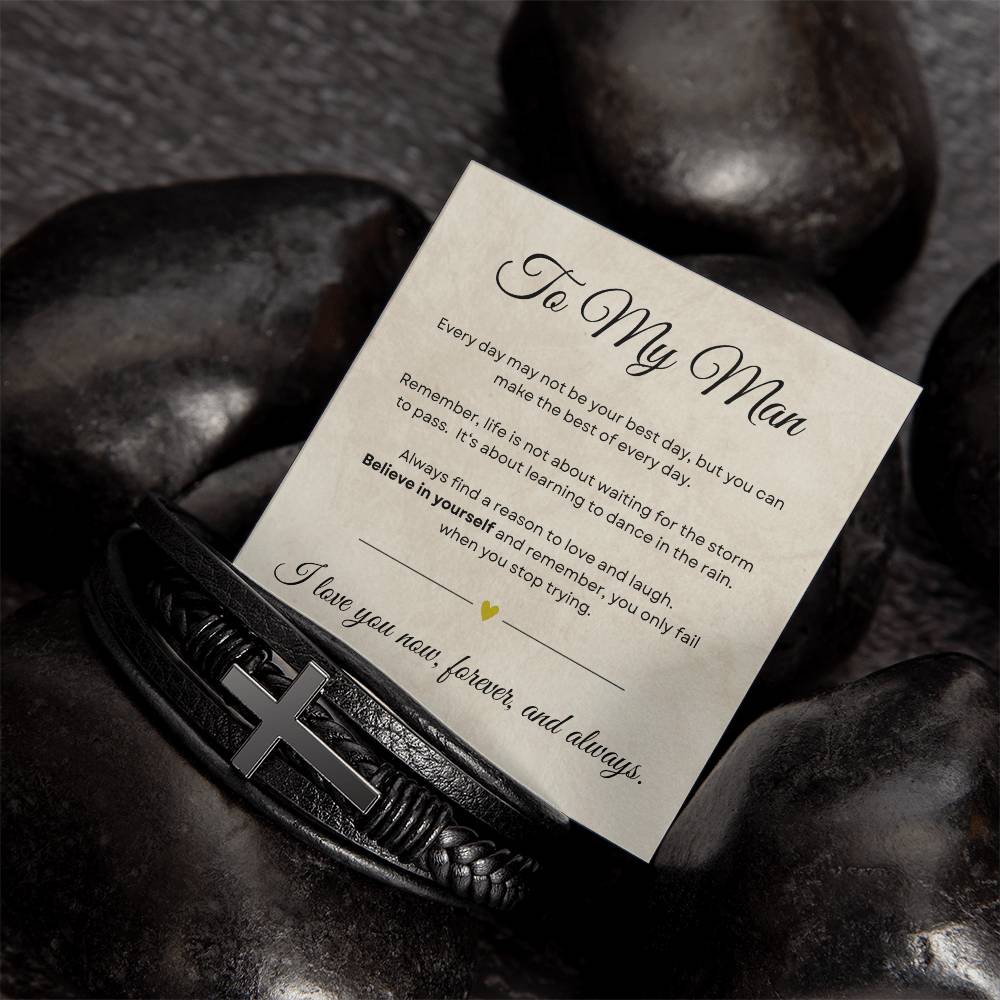 To My Man
Every day may not be your best day, but you can
make the best of every day.
Remember, life is not about waiting for the storm
to pass. It's about learning to dance in the rain.
Always find a reason to love and laugh.
Believe in yourself and remember, you only fail
when you stop trying.
I love you now, forever, and always.